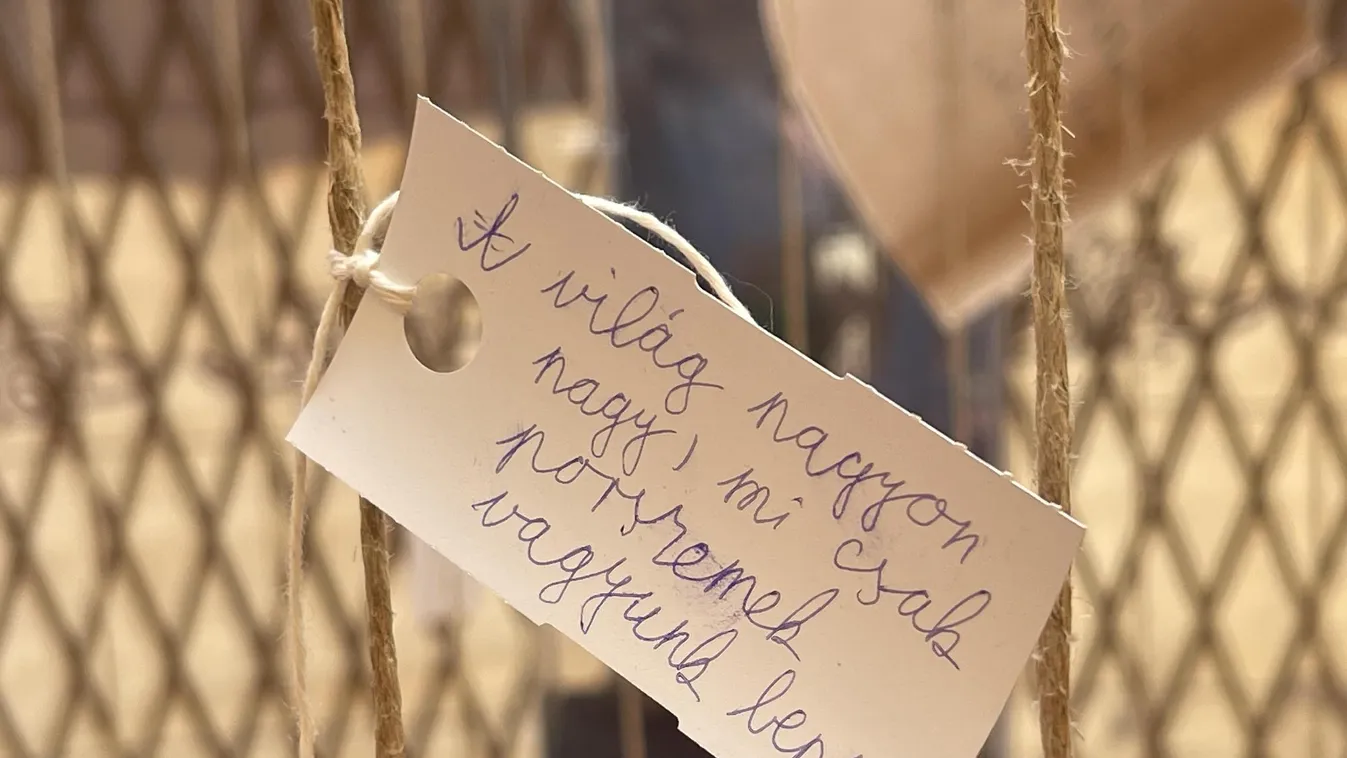 A világ nagyon
nagy, mi csak
porszemek
vagyunk